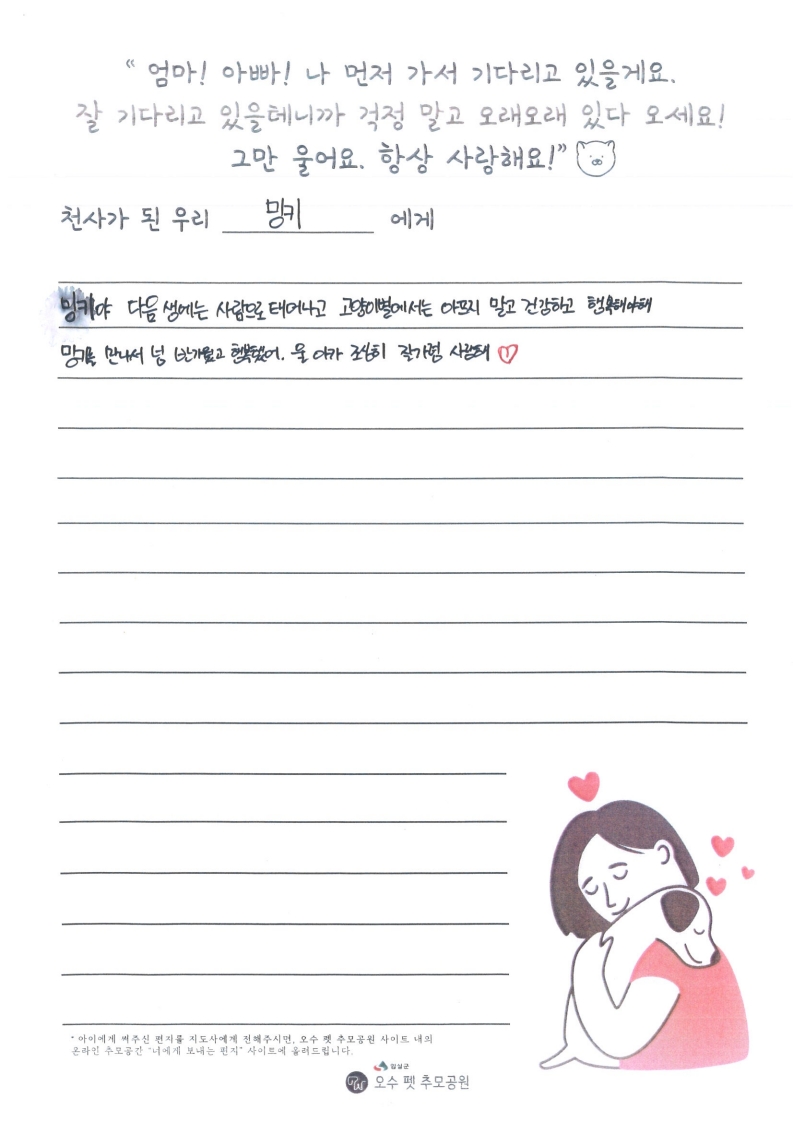 “ 엄마! 아빠! 나 먼저 가서 기다리고 있을게요.
잘 기다리고 있을테니까 걱정 말고 오래오래 있다 오세요!
그만 울어요. 항상 사랑해요!”
천사가 된 우리 밍키 에게
밍키야 다음 생에는 사람으로 태어나고 고양이별에서는 아프지 말고 건강하고 행복해야해
밍키를 만나서 넘 반가웠고 행복했어. 울 아가 조심히 잘가렴 사랑해
* 아이에게 써주신 편지를 지도사에게 전해주시면, 오수 펫 추모공원 사이트 내의
온라인 추모공간 “너에게 보내는 편지” 사이트에 올려드립니다.
임실군
오수 펫 추모공원